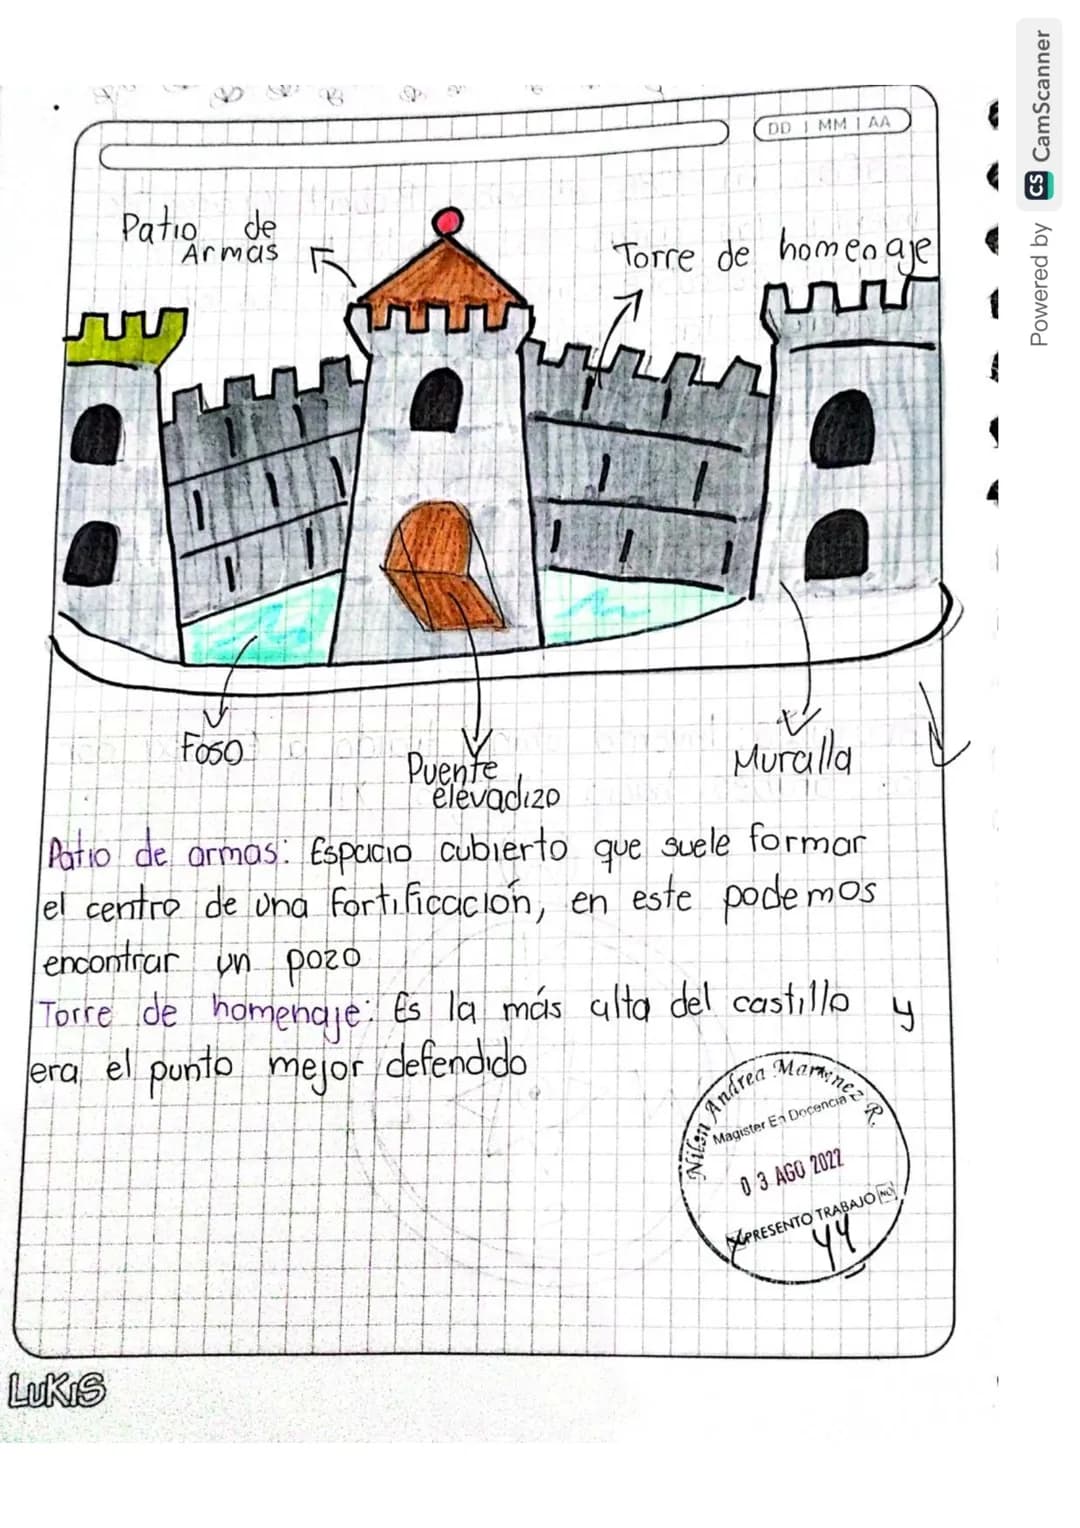 Powered by CS CamScanner
DD | MM | AA
Patio de
Armas
Torre de homenaje
Foso
Puente
elevadizo
Muralla
Patio de armas: Espacio cubierto que suele formar
el centro de una fortificación, en este podemos
encontrar un pozo
Torre de homenaje: Es la más alta del castillo y
era el punto mejor defendido
Andrea Martinez R.
Magister En Docencia
03 AGO 2022
PRESENTO TRABAJO NO
44
LuKiS